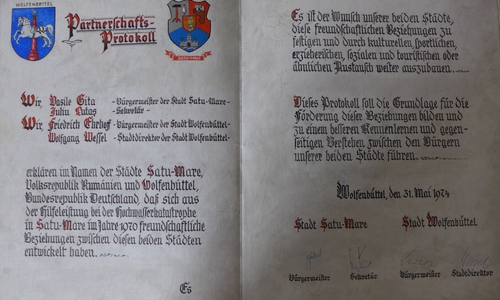 WOLFENBÜTTEL
Partnerschafts-
Protokoll
Wir, Vasile Gita -Bürgermeister der Stadt Satu-Mare-
-Sekretär-
Wir, Friedrich Ehrhof -Bürgermeister der Stadt Wolfenbüttel-
Wolfgang Wessel -Stadtdirektor der Stadt Wolfenbüttel-
erklären im Namen der Städte Satu-Mare,
Volksrepublik Rumänien und Wolfenbüttel,
Bundesrepublik Deutschland, daß sich aus
der Hilfeleistung bei der Hochwasserkatastrophe
in Satu-Mare im Jahre 1970 freundschaftliche
Beziehungen zwischen diesen beiden Städten
entwickelt haben.
Es
Es ist der Wunsch unserer beiden Städte,
diese freundschaftlichen Beziehungen zu
festigen und durch kulturellen, sportlichen,
erzieherischen, sozialen und touristischen oder
ähnlichen Austausch weiter auszubauen.
Dieses Protokoll soll die Grundlage für die
Förderung dieser Beziehungen bilden und
zu einem besseren Kennenlernen und gegen-
seitigen Verstehen zwischen den Bürgern
unserer beiden Städte führen.
Wolfenbüttel, den 31. Mai 1974
Stadt Satu-Mare Stadt Wolfenbüttel
Bürgermeister Sekretär Bürgermeister Stadtdirektor